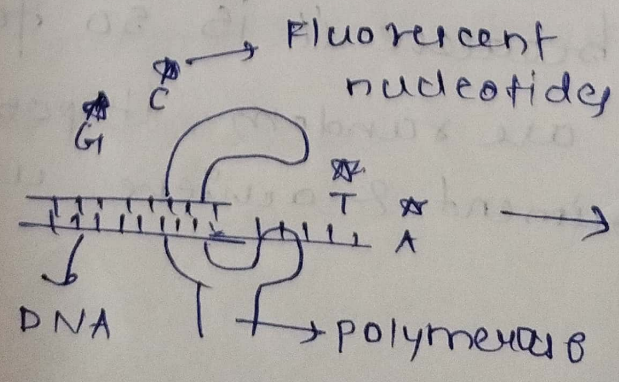 Fluorescent
nucleotides
C
G
T
A
DNA
polymerase